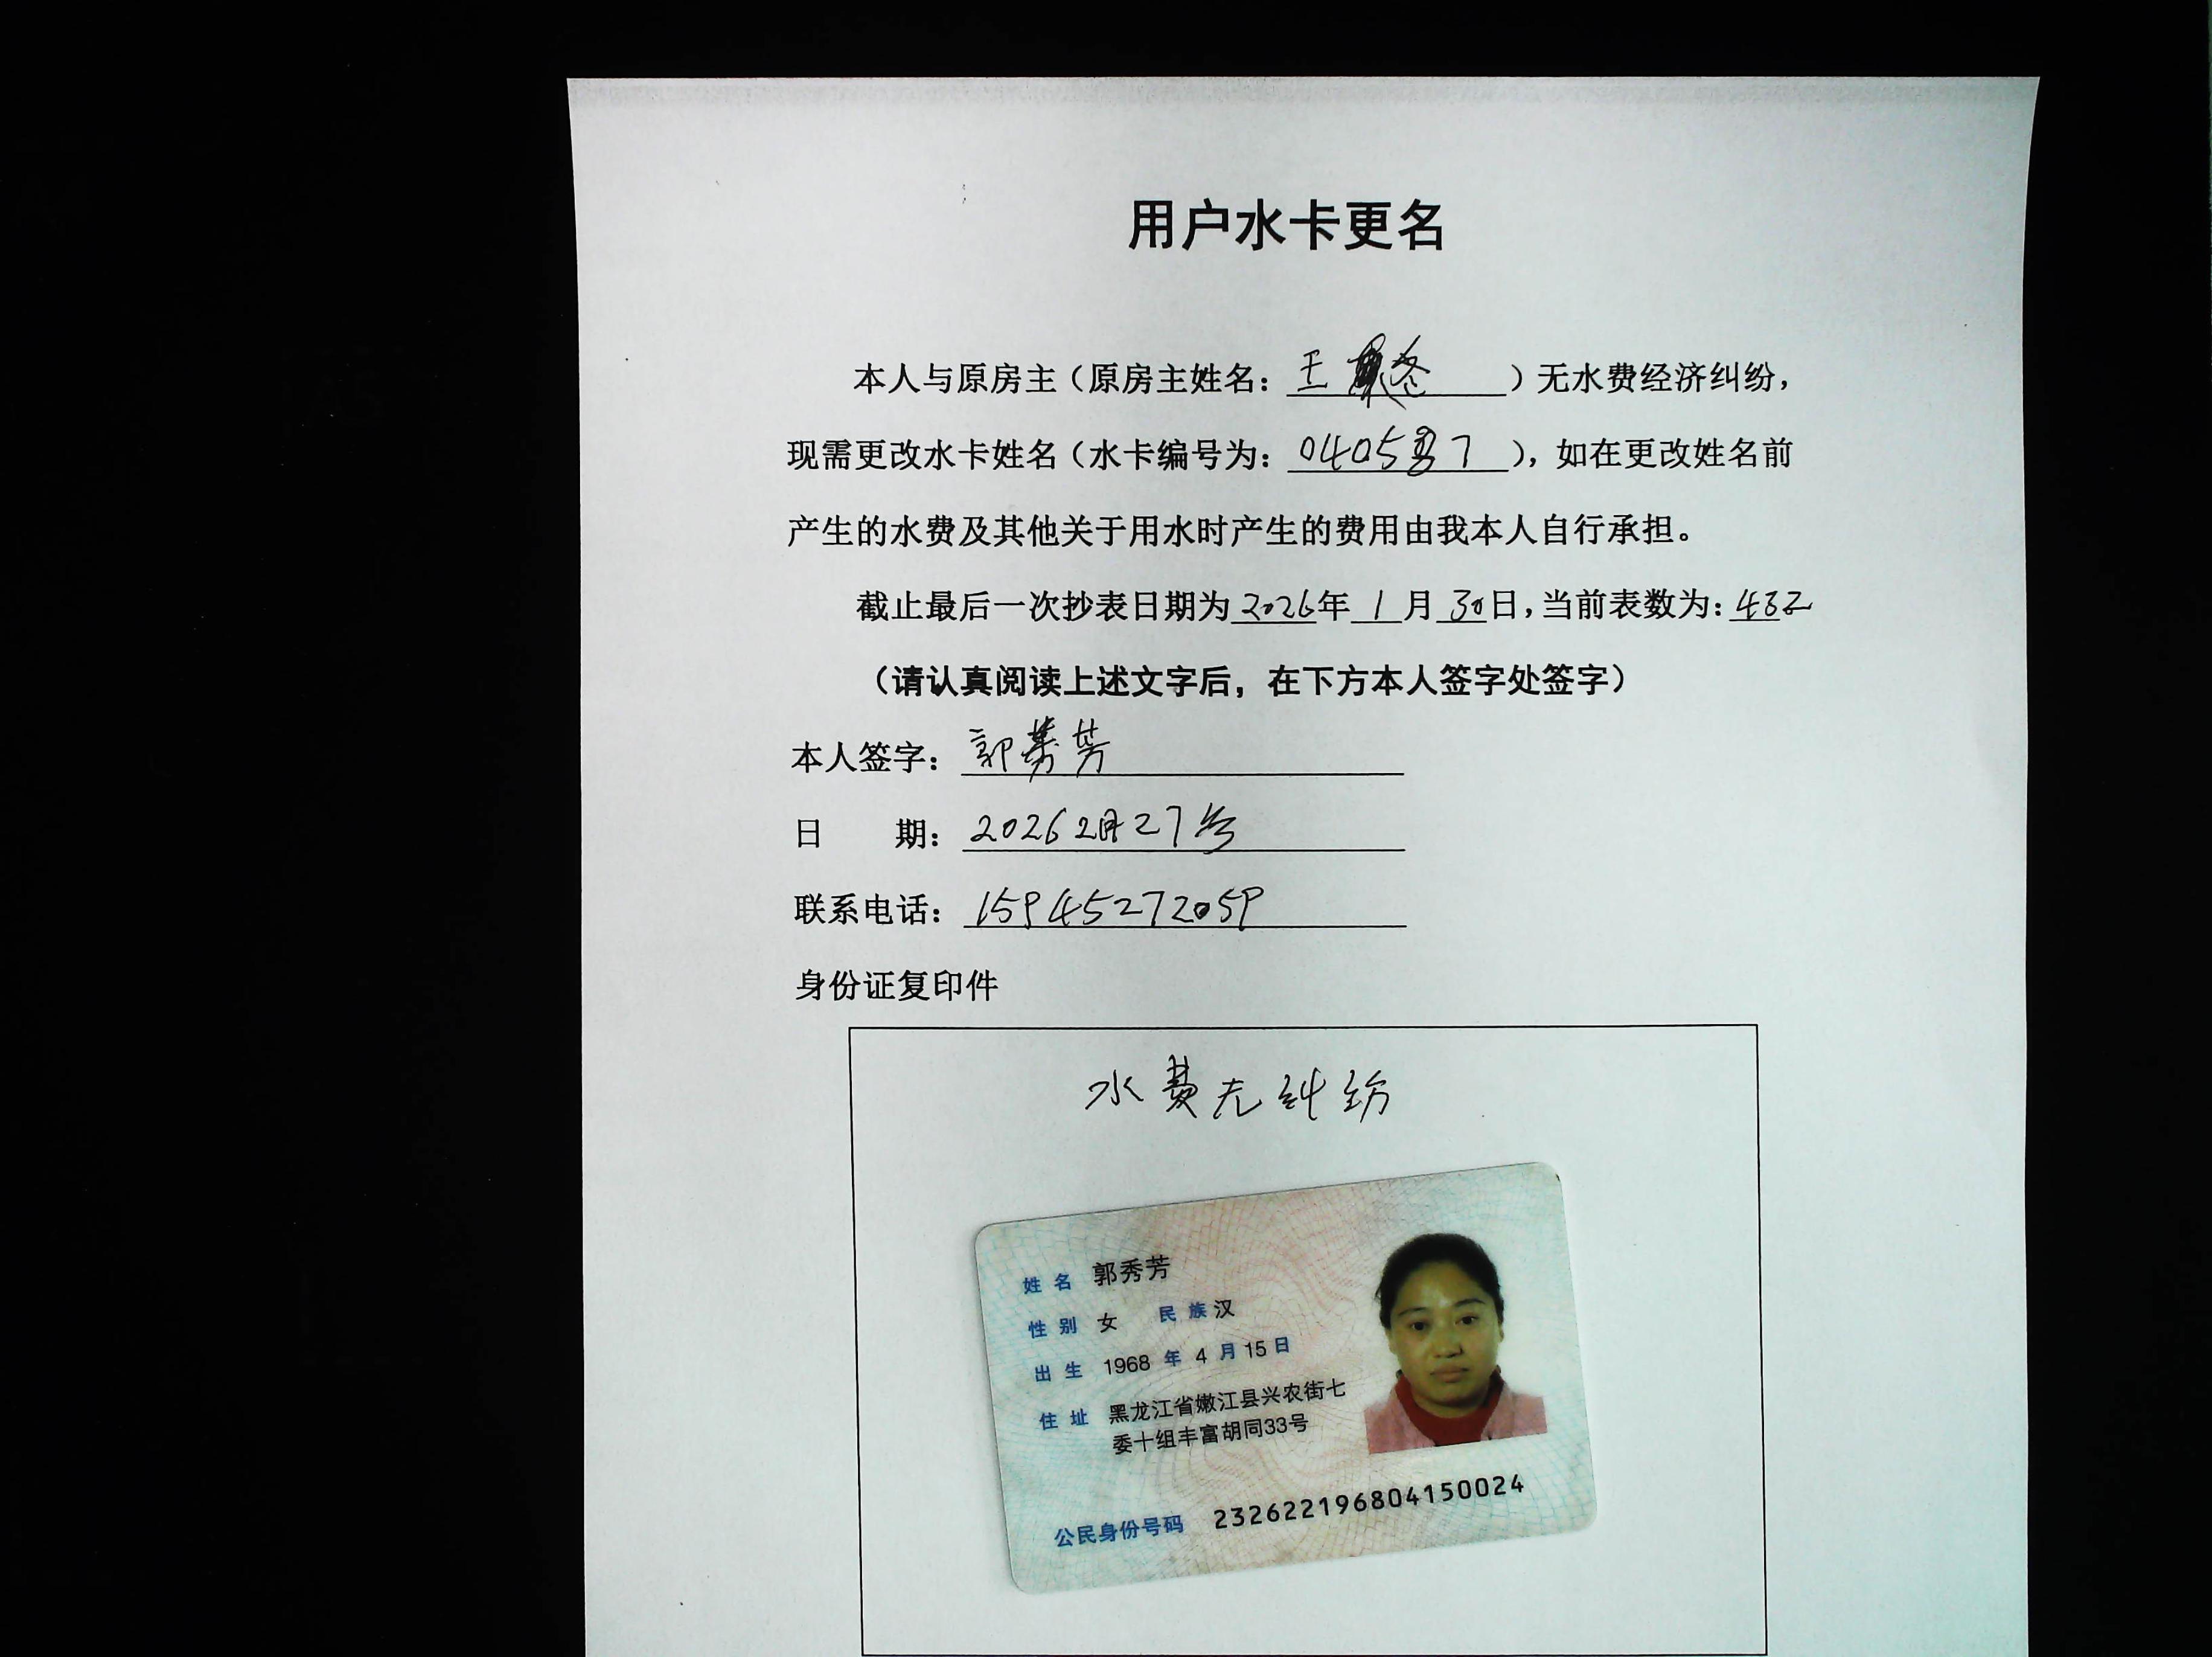 用户水卡更名
本人与原房主（原房主姓名：王）无水费经济纠纷，
现需更改水卡姓名（水卡编号为：），如在更改姓名前
产生的水费及其他关于用水时产生的费用由我本人自行承担。
截止最后一次抄表日期为2026年1月30日，当前表数为：482
（请认真阅读上述文字后，在下方本人签字处签字）
本人签字：郭秀芳
日 期：2026 2月27号
联系电话：15945272059
身份证复印件
水费无纠纷
姓名 郭秀芳
性别 女 民族 汉
出生 1968 年 4 月 15 日
住址 黑龙江省嫩江县兴农街七
委十组丰富胡同33号
公民身份号码 232622196804150024